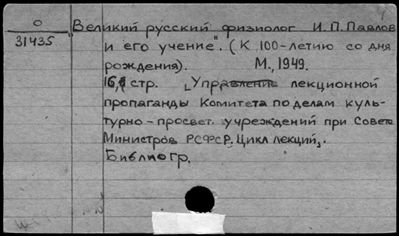 О
31435
Великий русский физиолог И.П.Павлов
и его учение". (К 100-летию со дня
рождения). М., 1949.
16, стр. „Управление лекционной
пропаганды Комитета по делам куль-
турно-просвет. учреждений при Совете
Министров РСФСР. Цикл лекций„.
Библиогр.